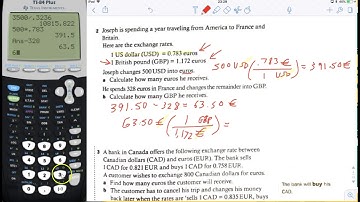 TI-84 Plus
3500*.3236
10815.822
500*.783
391.5
Ans-328
63.5
2 Joseph is spending a year traveling from America to France and
Britain.
Here are the exchange rates.
1 US dollar (USD) = 0.783 euro
1 British pound (GBP) = 1.172 euro
Joseph changes 500 USD into euro.
a Calculate how many euro he receives.
He spends 328 euro in France and changes the remainder into GBP.
b Calculate how many GBP he receives.
500 USD (.783 € / 1 USD) = 391.50 €
391.50 - 328 = 63.50 €
63.50 € (1 GBP / 1.172 €) =
3 A bank in Canada offers the following exchange rate between
Canadian dollars (CAD) and euros (EUR). The bank sells
1 CAD for 0.821 EUR and buys 1 CAD for 0.758 EUR.
A customer wishes to exchange 800 Canadian dollars for euros.
a Find how many euros the customer will receive.
b The customer has to cancel his trip and changes his money
back later when the rates are 'sells 1 CAD = 0.835 EUR, buys
The bank will buy his
CAD.